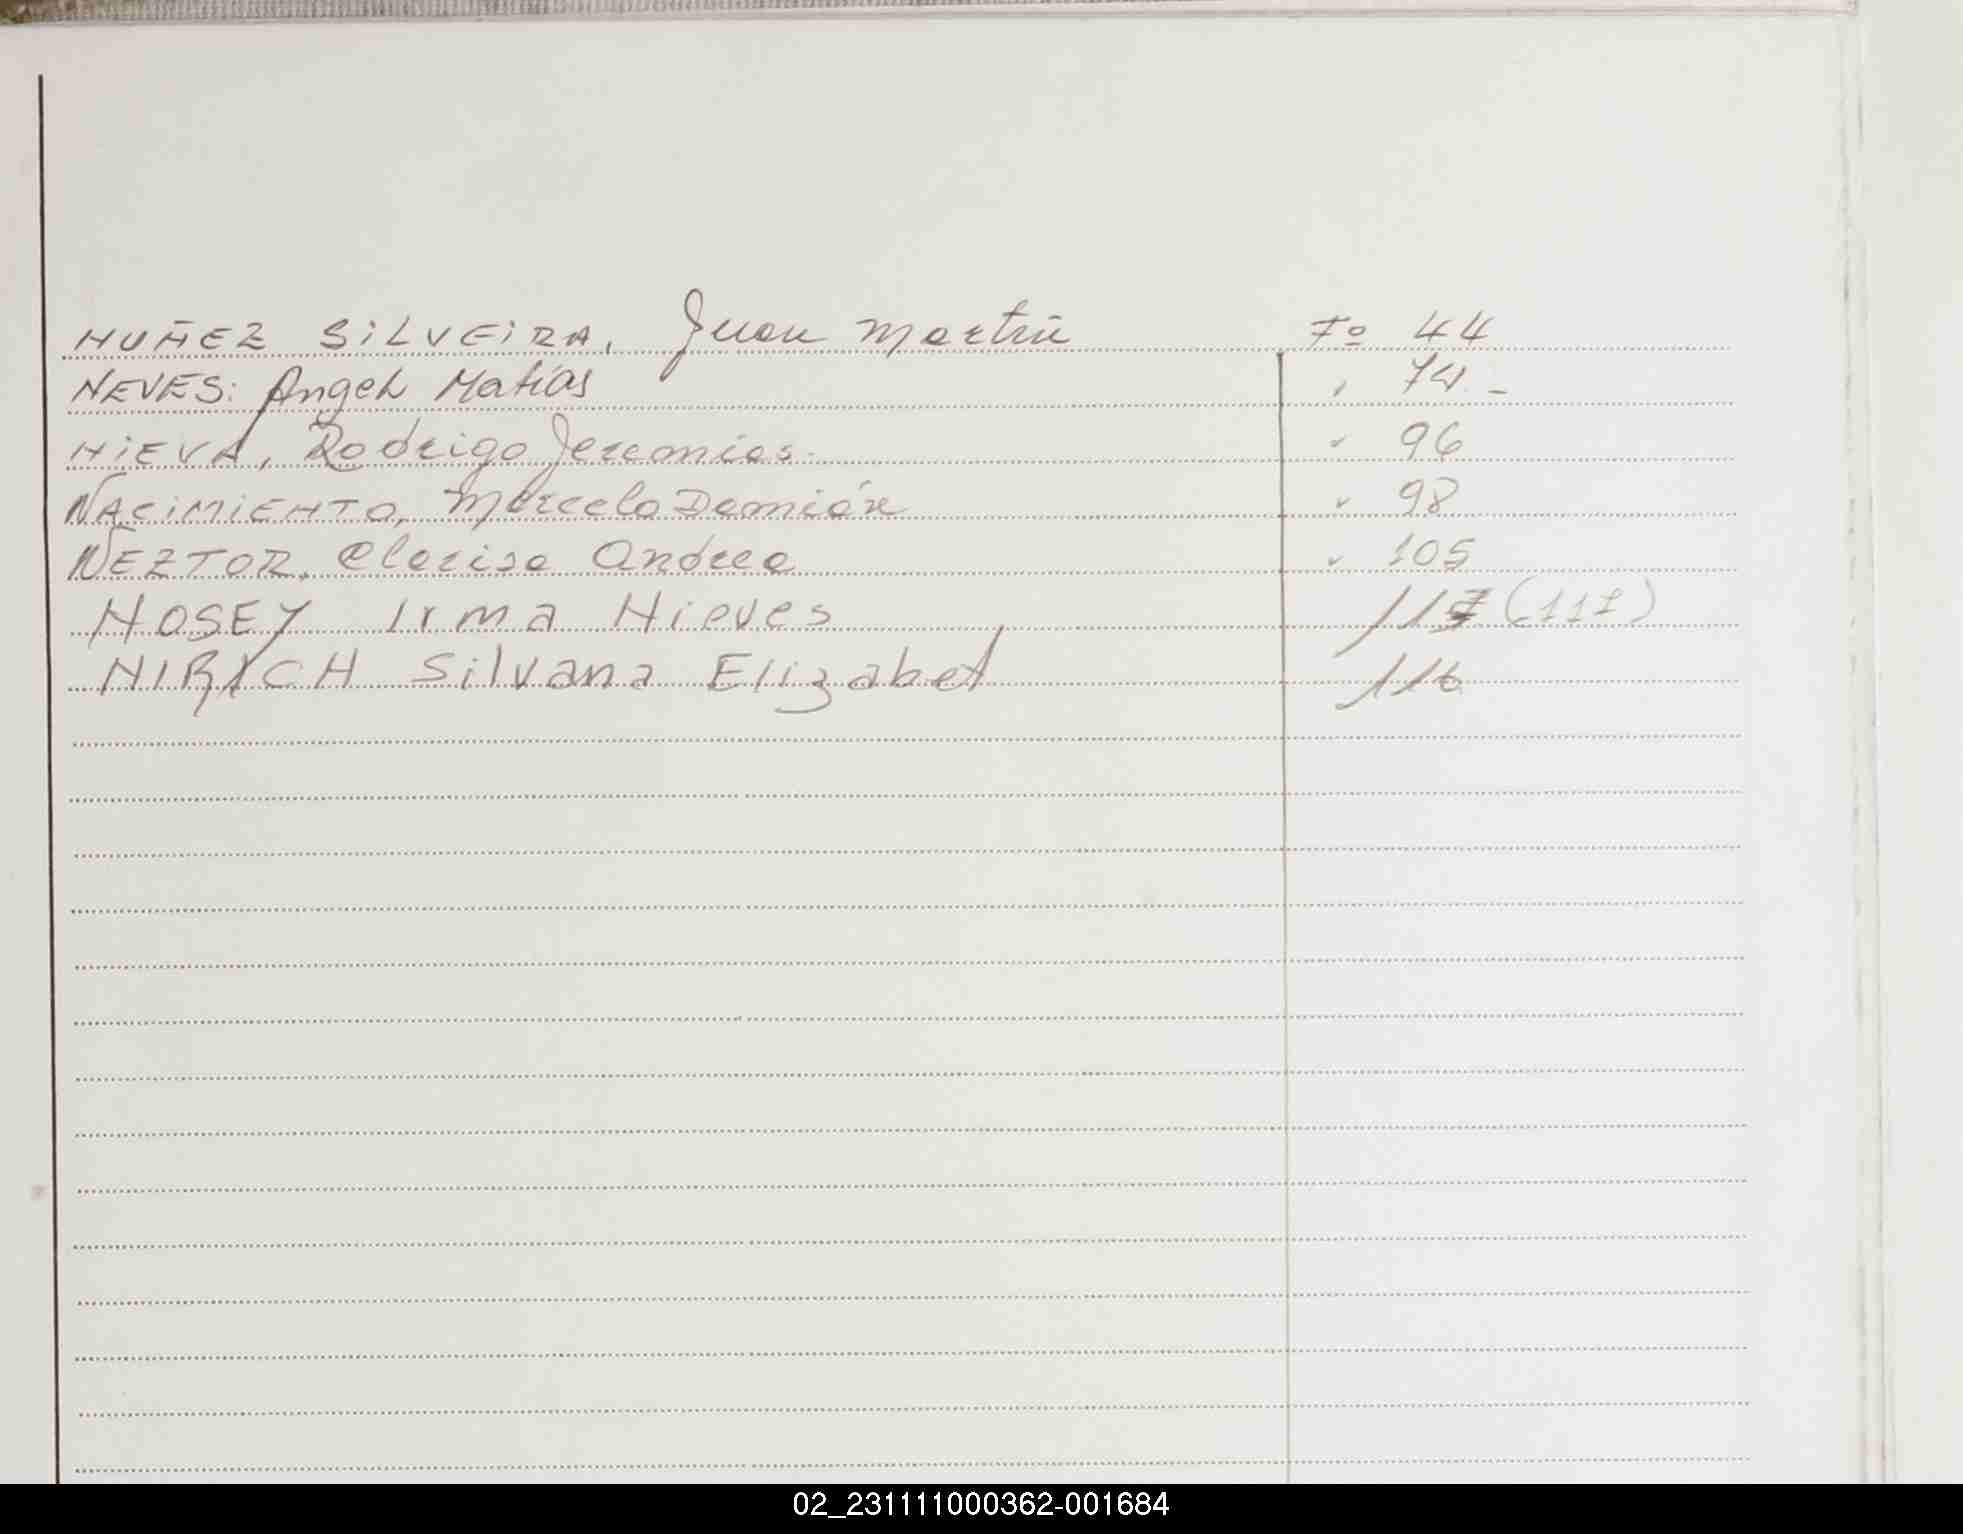 NUÑEZ SILVEIRA, Juan Martín Fº 44
NEVES: Angel Matías " 74 -
NIEVA, Rodrigo Jeremías. " 96
NACIMIENTO, Marcelo Damián " 98
NEZTOR, Clarisa Andrea " 105
NOSEY Irma Nieves 117 (117)
NIRICH Silvana Elizabet 116
02_231111000362-001684